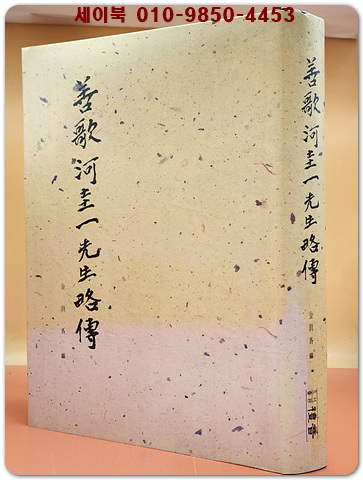 세이북 010-9850-4453
善歌 河圭一先生略傳
金眞香 編
善歌 河圭一先生略傳
金眞香 編